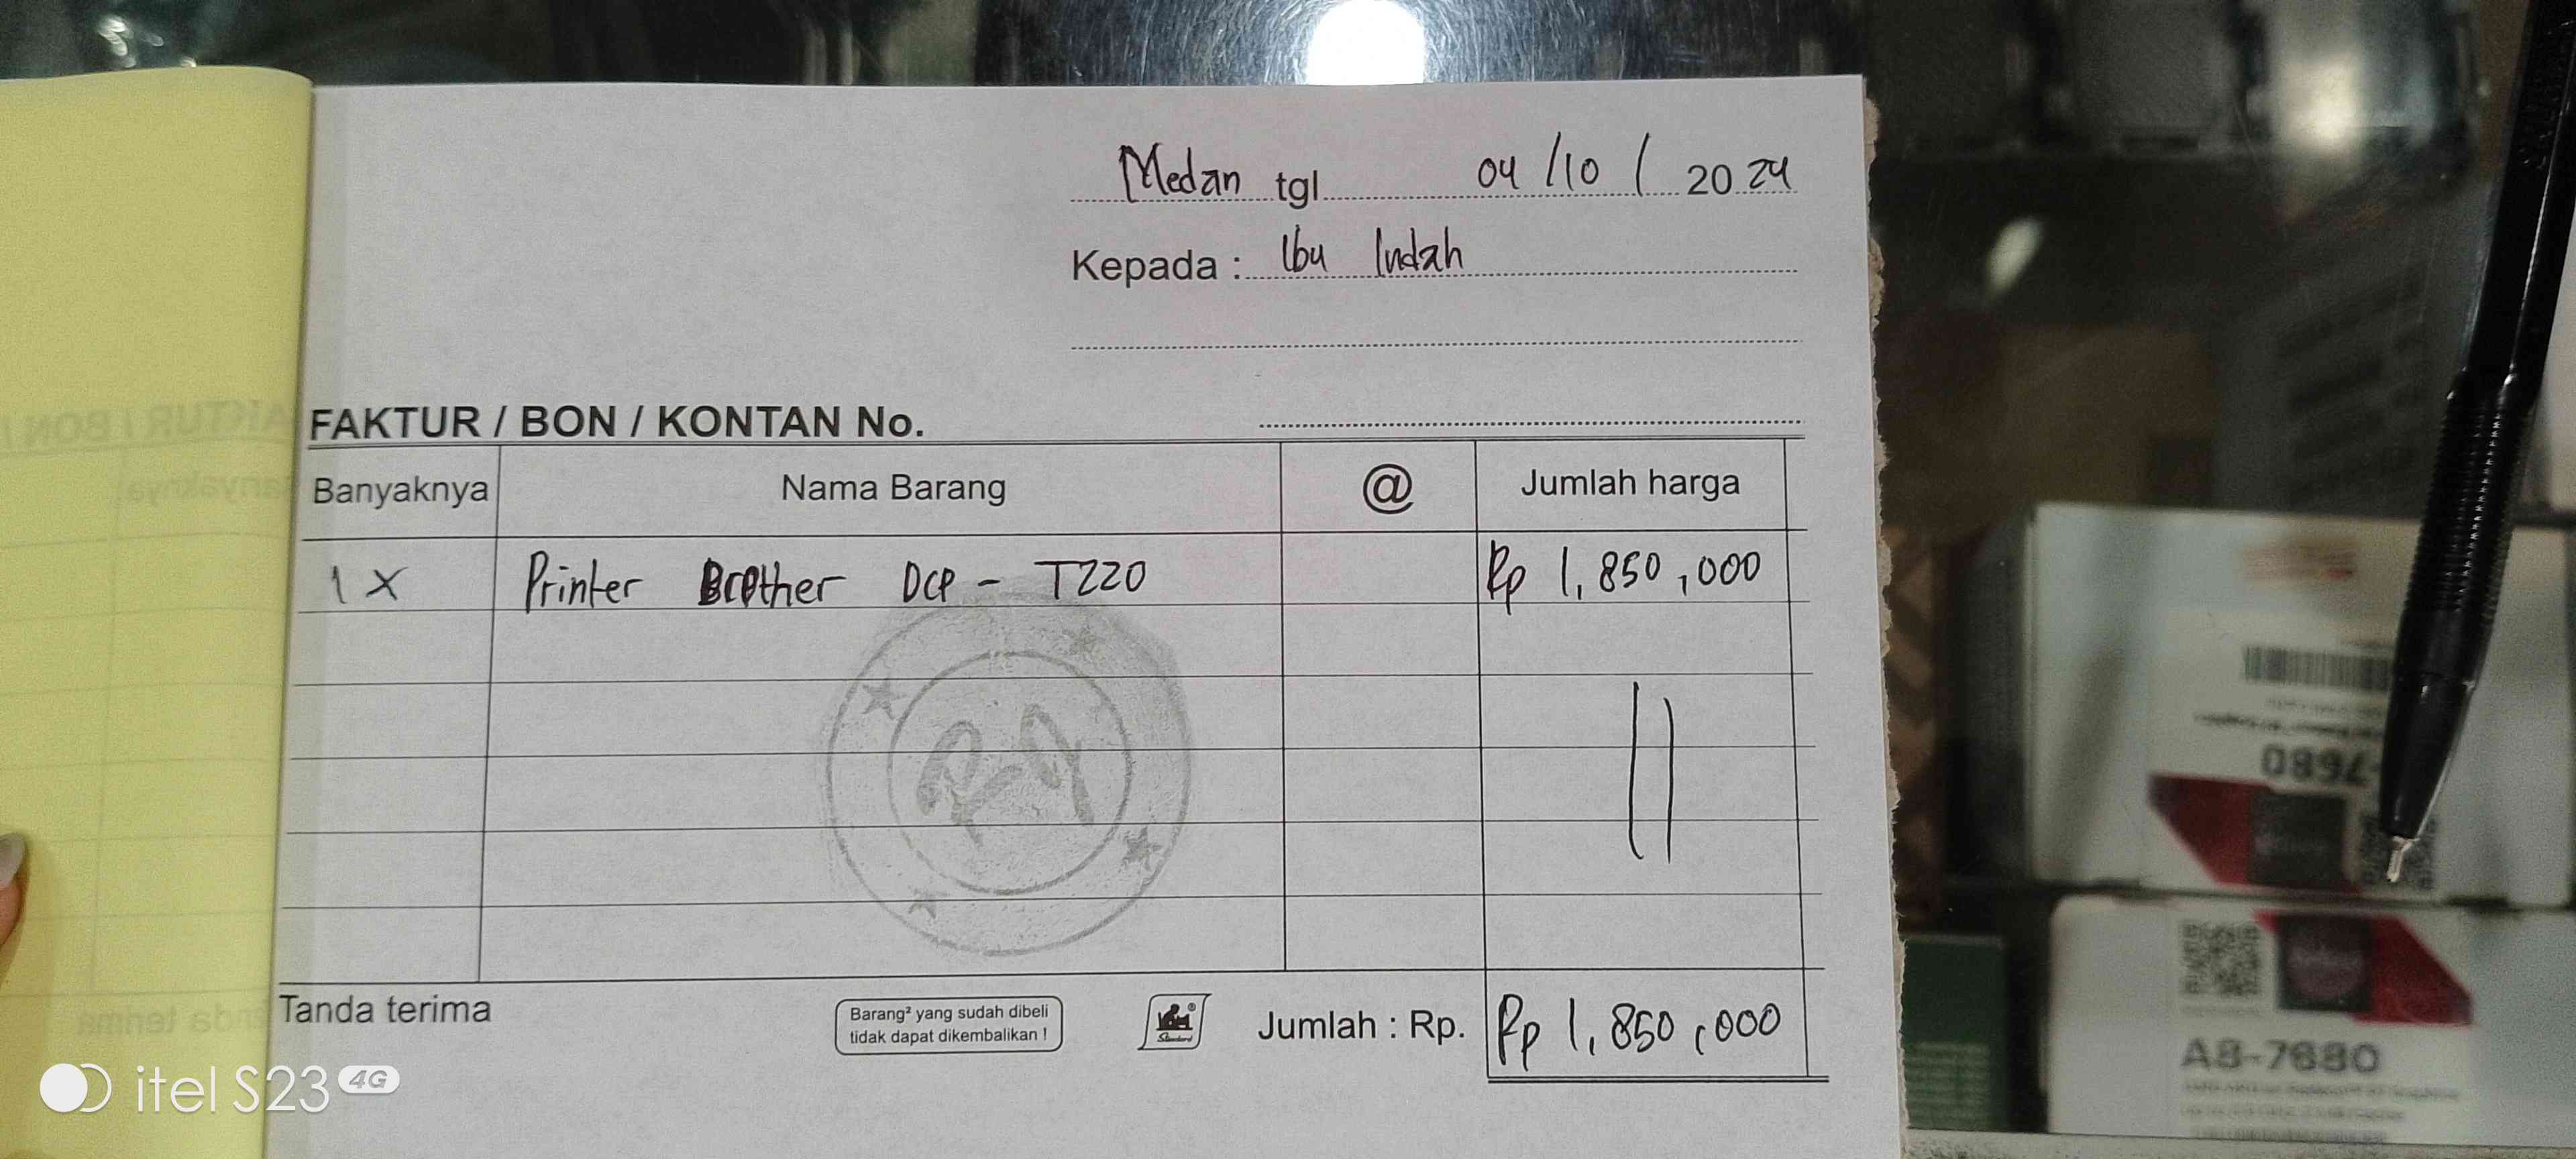 Medan tgl 04/10/ 20 24
Kepada : Ibu Indah
FAKTUR / BON / KONTAN No.
Banyaknya Nama Barang @ Jumlah harga
1 X Printer Brother DCP - T220 Rp 1,850,000
RM
Tanda terima
Barang² yang sudah dibeli
tidak dapat dikembalikan !
Standard
Jumlah : Rp. Rp 1,850,000
itel S23 4G
-7680
A8-7680